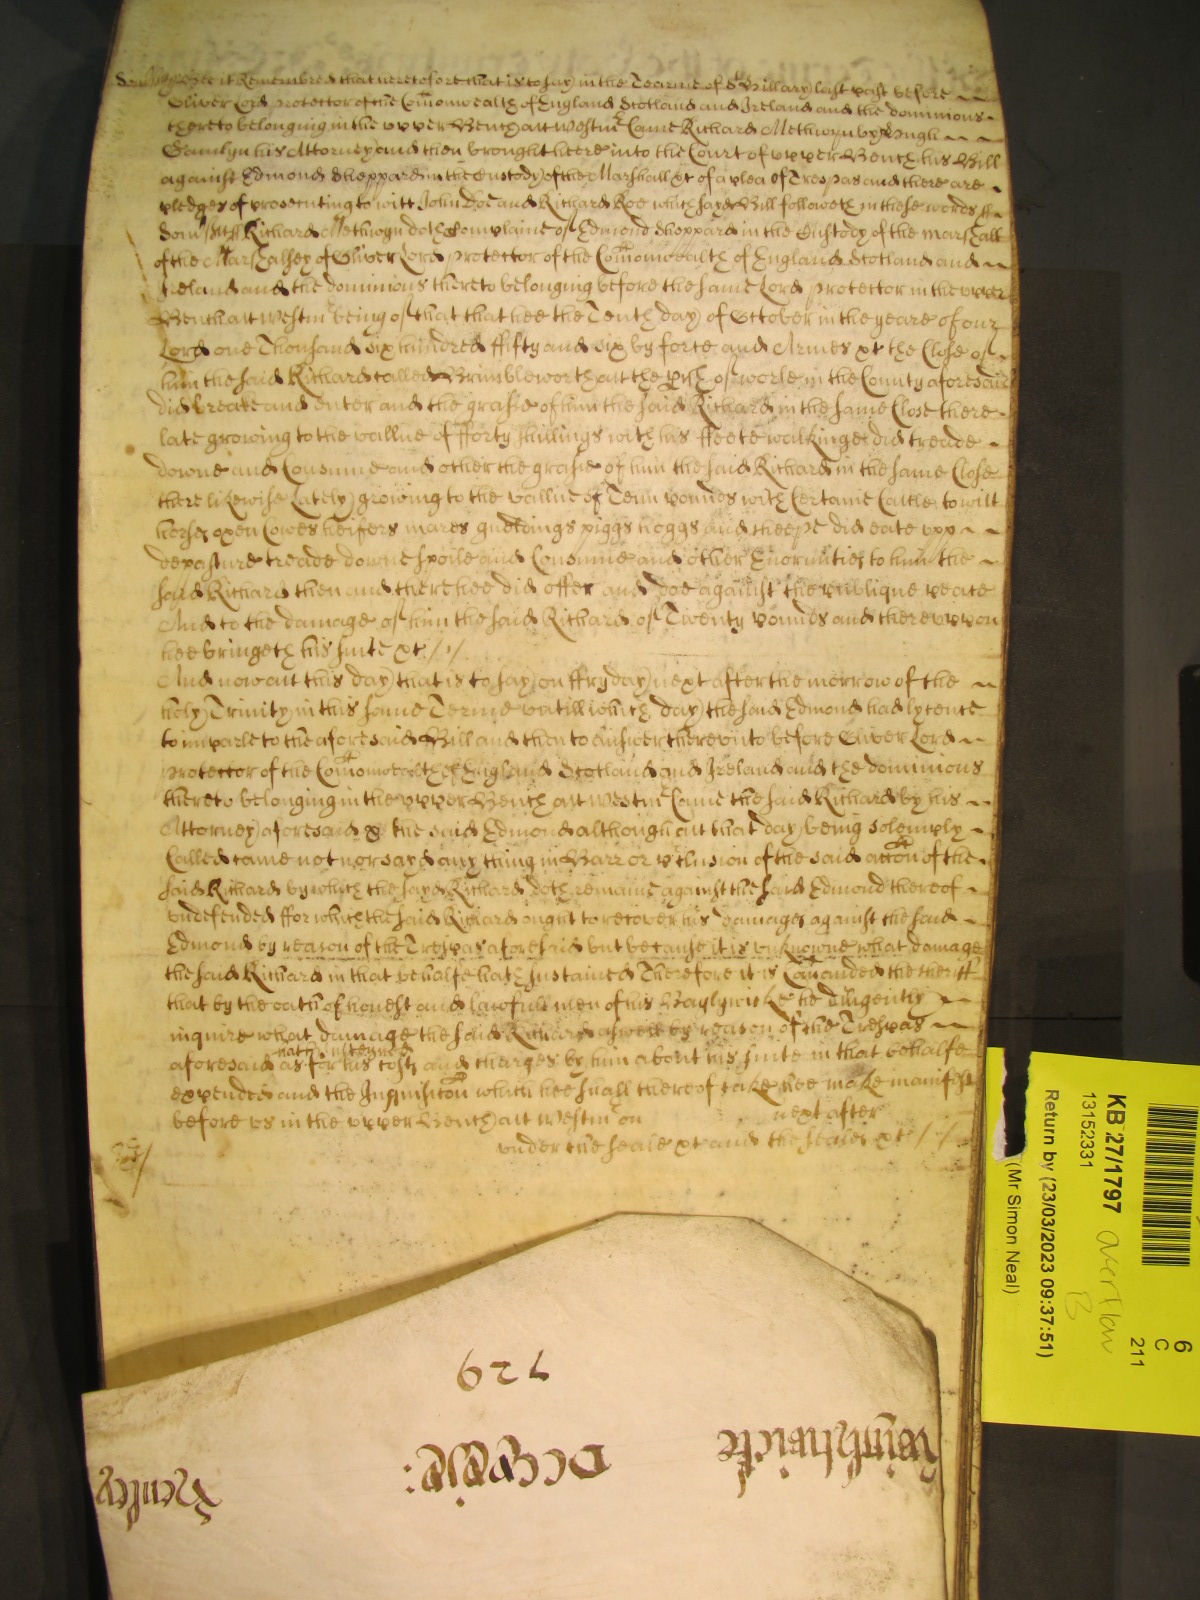 Som'sett Bee it Remembred that heretofore that is to say in the Tearme of St Hillary last past before
Oliver Lord Protector of the Com̄onwealth of England Scotland and Ireland and the dominions
thereto belonging in the upper Bench att Westm' Came Richard Methwyn by Hugh
Hamlyn his Attorney and then brought heere into the Court of upper Bench his Bill
against Edmond Sheppard in the Custody of the Marshall &c of a plea of Trespas and there are
pledges of prosecuting to witt John Doe and Richard Roe which sayd Bill followeth in these words ss
Som'sett ss Richard Methwyn doth Complaine of Edmond Sheppard in the Custody of the marshall
of the Marshalsey of Oliver Lord protector of the Com̄onwealth of England Scotland and
Ireland and the dominions thereto belonging before the same Lord protector in the upper
Bench att Westm' being of that that hee the Tenth day of October in the yeare of our
Lord one Thousand Six hundred ffifty and six by force and Armes &c the Close of
him the said Richard called Brimbleworth att the pish of worle in the County aforesaid
did breake and enter and the grasse of him the said Richard in the same Close there
late growing to the vallue of fforty shillings with his ffeete walkinge did treade
downe and Consume and other the grasse of him the said Richard in the same Close
there likewise lately growing to the vallue of Tenn pounds with Certaine Cattle to witt
horses oxen Cowes heifers mares gueldings piggs hoggs and sheepe did eate upp
depasture treade downe spoile and Consume and other Enormities to him the
said Richard then and there hee did offer and doe against the publique peace
And to the damage of him the said Richard of Twenty pounds and thereuppon
hee bringeth his suite &c //
And now att this day that is to say on ffryday next after the morrow of the
holy Trinity in this same Terme untill which day the said Edmond had lycence
to imparle to the aforesaid Bill and then to answer thereunto before Oliver Lord
protector of the Com̄onwealth of England Scotland and Ireland and the dominions
thereto belonging in the upper Bench att Westm' Came the said Richard by his
Attorney aforesaid & the said Edmond although att that day being solemply
Called came not nor sayd any thing in Barr or p'clusion of the said acc̄on of the
said Richard by which the sayd Richard doth remaine against the said Edmond thereof
undefended ffor which the said Richard ought to recover his damages against the said
Edmond by reason of the Trespas aforesaid but because it is unknowne what damage
the said Richard in that behalfe hath sustained Therefore it is Com̄anded the sheriff
that by the oath of honest and lawfull men of his Baylywicke he diligently
inquire what damage the said Richard aswell by reason of the Trespas
aforesaid hath susteyned as for his costs and charges by him about his suite in that behalfe
expended and the Inquisic̄on which hee shall thereof take hee make manifest
before us in the upper Bench att Westm' on next after
under the seale &c and the seales &c //
729
Hentley
Return by (23/03/2023 09:37:51)
13152331
KB 27/1797
(Mr Simon Neal)
overflow
B
6
C
211